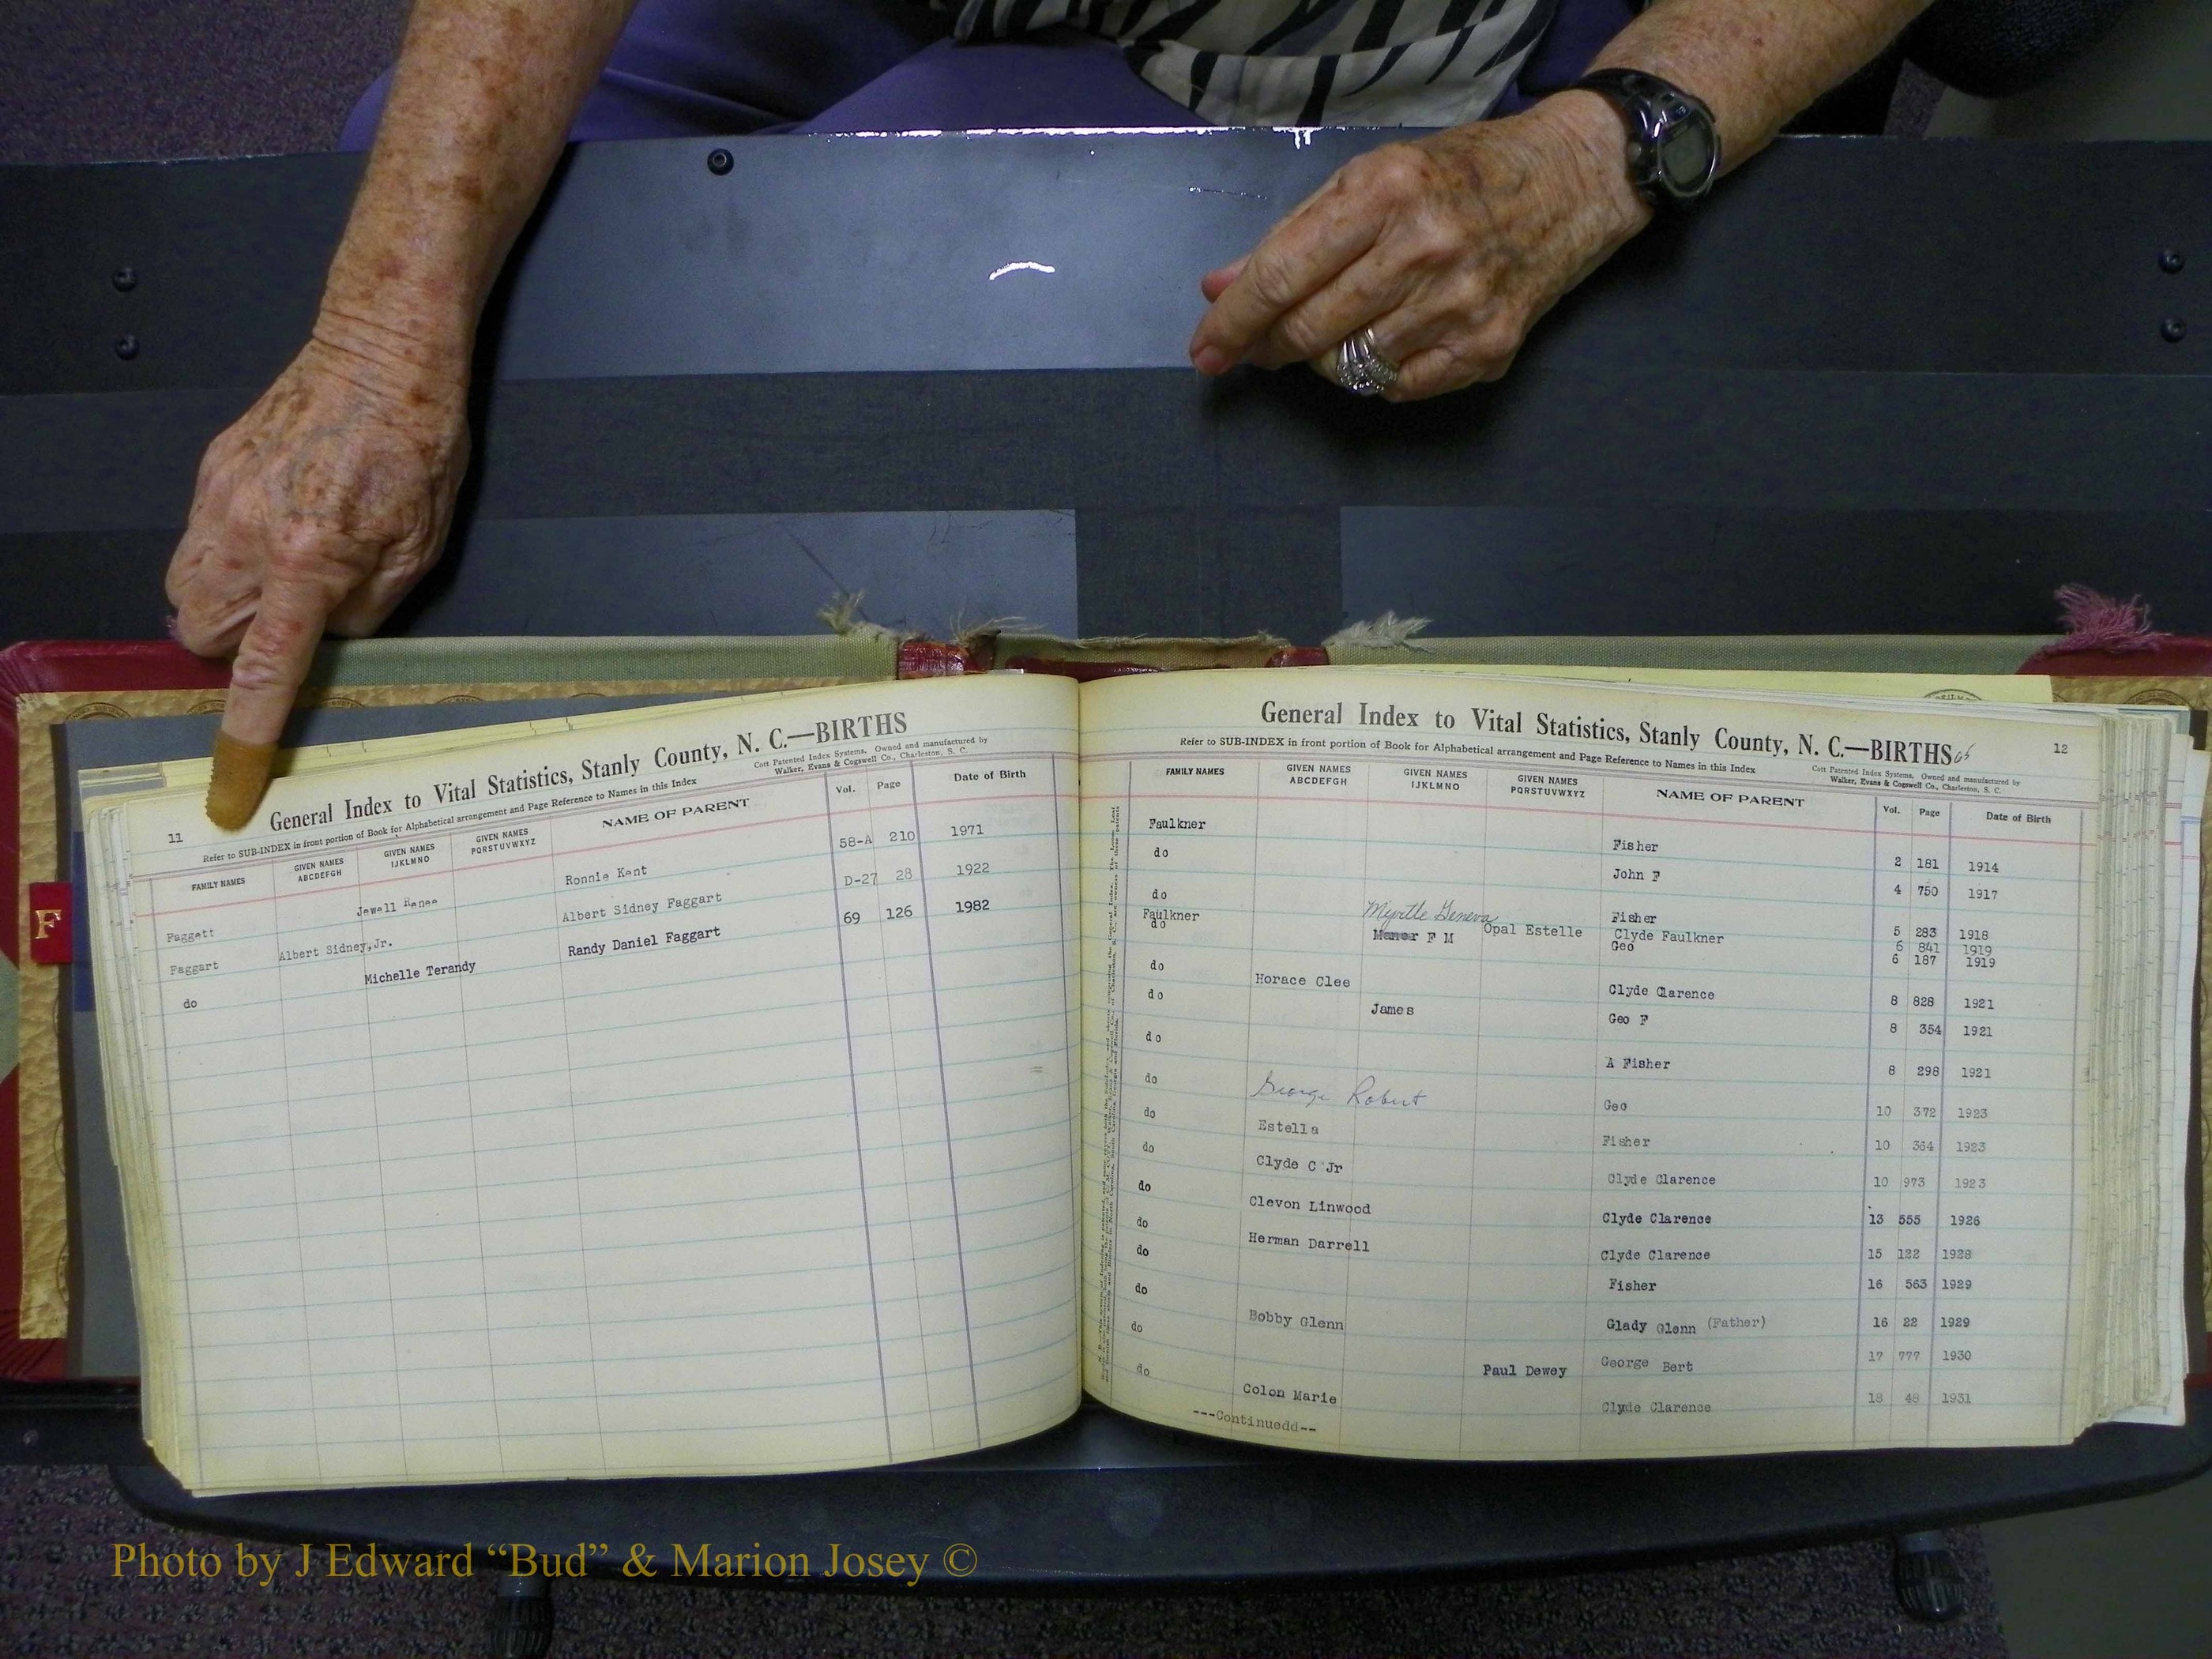 F
11
General Index to Vital Statistics, Stanly County, N. C.—BIRTHS
Refer to SUB-INDEX in front portion of Book for Alphabetical arrangement and Page Reference to Names in this Index
Cott Patented Index Systems. Owned and manufactured by
Walker, Evans & Cogswell Co., Charleston, S. C.
FAMILY NAMES GIVEN NAMES ABCDEFGH GIVEN NAMES IJKLMNO GIVEN NAMES PQRSTUVWXYZ NAME OF PARENT Vol. Page Date of Birth
Faggett Jewell Renee Ronnie Kent 58-A 210 1971
Faggart Albert Sidney, Jr. Albert Sidney Faggart D-27 28 1922
do Michelle Terandy Randy Daniel Faggart 69 126 1982
General Index to Vital Statistics, Stanly County, N. C.—BIRTHS
12
Refer to SUB-INDEX in front portion of Book for Alphabetical arrangement and Page Reference to Names in this Index
Cott Patented Index Systems. Owned and manufactured by
Walker, Evans & Cogswell Co., Charleston, S. C.
FAMILY NAMES GIVEN NAMES ABCDEFGH GIVEN NAMES IJKLMNO GIVEN NAMES PQRSTUVWXYZ NAME OF PARENT Vol. Page Date of Birth
Faulkner Fisher 2 181 1914
do John F 4 750 1917
do Fisher 5 283 1918
Faulkner Opal Estelle Clyde Faulkner 6 841 1919
do Myrtle Geneva F M Geo 6 187 1919
do Horace Clee Clyde Clarence 8 828 1921
do James Geo F 8 354 1921
do A Fisher 8 298 1921
do George Robert Geo 10 372 1923
do Estella Fisher 10 364 1923
do Clyde C Jr Clyde Clarence 10 973 1923
do Clevon Linwood Clyde Clarence 13 555 1926
do Herman Darrell Clyde Clarence 15 122 1928
do Fisher 16 563 1929
do Bobby Glenn Glady Glenn (Father) 16 22 1929
do Paul Dewey George Bert 17 777 1930
do Colon Marie Clyde Clarence 18 48 1931
---Continuedd--
Photo by J Edward “Bud” & Marion Josey ©